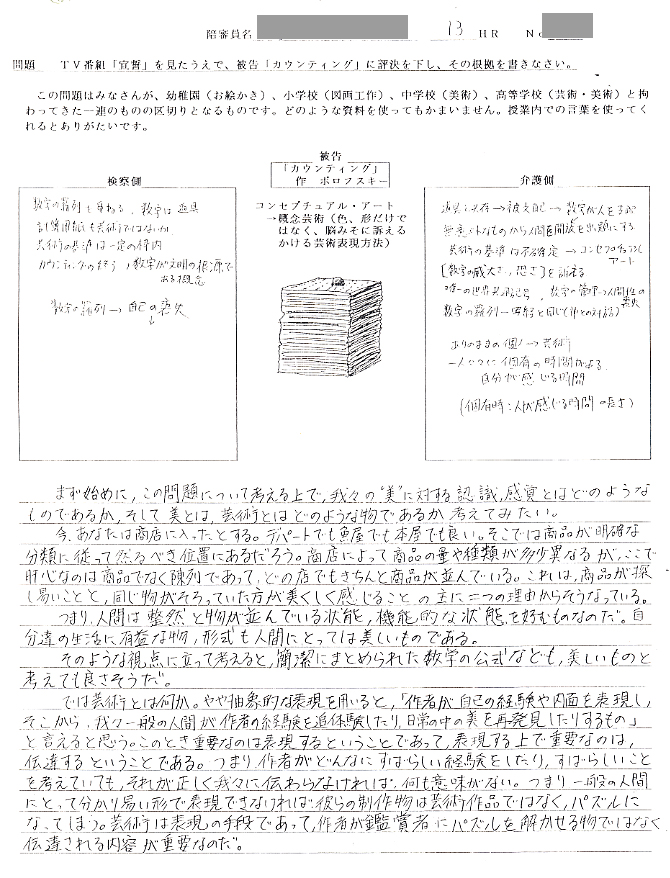 陪審員名 13 HR No
問題 TV番組「宣誓」を見たうえで、被告「カウンティング」に評決を下し、その根拠を書きなさい。
この問題はみなさんが、幼稚園（お絵かき）、小学校（図画工作）、中学校（美術）、高等学校（芸術・美術）と拘
わってきた一連のものの区切りとなるものです。どのような資料を使ってもかまいません。授業内での言葉を使ってく
れるとありがたいです。
検察側
数字の羅列を重ねる、数字は道具
計算用紙も芸術ではないか
芸術の基準は一定の枠内
カウンティングの
数字が文明の根源で
ある概念
数字の羅列→自己の喪失
↓
被告
「カウンティング」
作 ボロフスキー
コンセプチュアル・アート
→概念芸術（色、形だけで
はなく、脳みそに訴えを
かける芸術表現方法）
弁護側
数字が人を
無意味なものから人間を
芸術の基準は不確定→コンセプチュアル
アート
[数字の威大さ、恐さ]を訴える
唯一の世界共通記号、数字の 人間性の
喪失
数字の羅列
ありのままの個人→芸術
一人一人に個有の時間がある
自分が感じる時間
(個有時：人が感じる時間の長さ)
まず始めに，この問題について考える上で，我々の"美"に対する認識，感覚とはどのような
ものであるか，そして美とは，芸術とはどのような物であるか考えてみたい。
今，あなたは商店に入ったとする。デパートでも魚屋でも本屋でも良い。そこでは商品が明確な
分類に従って然るべき位置にあるだろう。商店によって商品の量や種類が多少異なるが，ここで
肝心なのは商品でなく陳列であって，どの店でもきちんと商品が並んでいる。これは，商品が探
し易いことと，同じ物がそろっていた方が美くしく感じることの主に二つの理由からそうなっている。
つまり，人間は整然と物が並んでいる状態，機能的な状態を好むものなのだ。自
分達の生活に有益な物，形式も人間にとっては美しいものである。
そのような視点に立って考えると，簡潔にまとめられた数学の公式なども，美しいものと
考えても良さそうだ。
では芸術とは何か。やや抽象的な表現を用いると，「作者が自己の経験や内面を表現し，
そこから，我々一般の人間が作者の経験を追体験したり，日常の中の美を再発見したりするもの」
と言えると思う。このとき重要なのは表現するということであって，表現する上で重要なのは，
伝達するということである。つまり，作者がどんなにすばらしい経験をしたり，すばらしいこと
を考えていても，それが正しく我々に伝わらなければ，何も意味がない。つまり一般の人間
にとって分かり易い形で表現できなければ，彼らの制作物は芸術作品ではなく，パズルに
なってしまう。芸術は表現の手段であって，作者が鑑賞者にパズルを解かせる物ではなく
伝達される内容が重要なのだ。